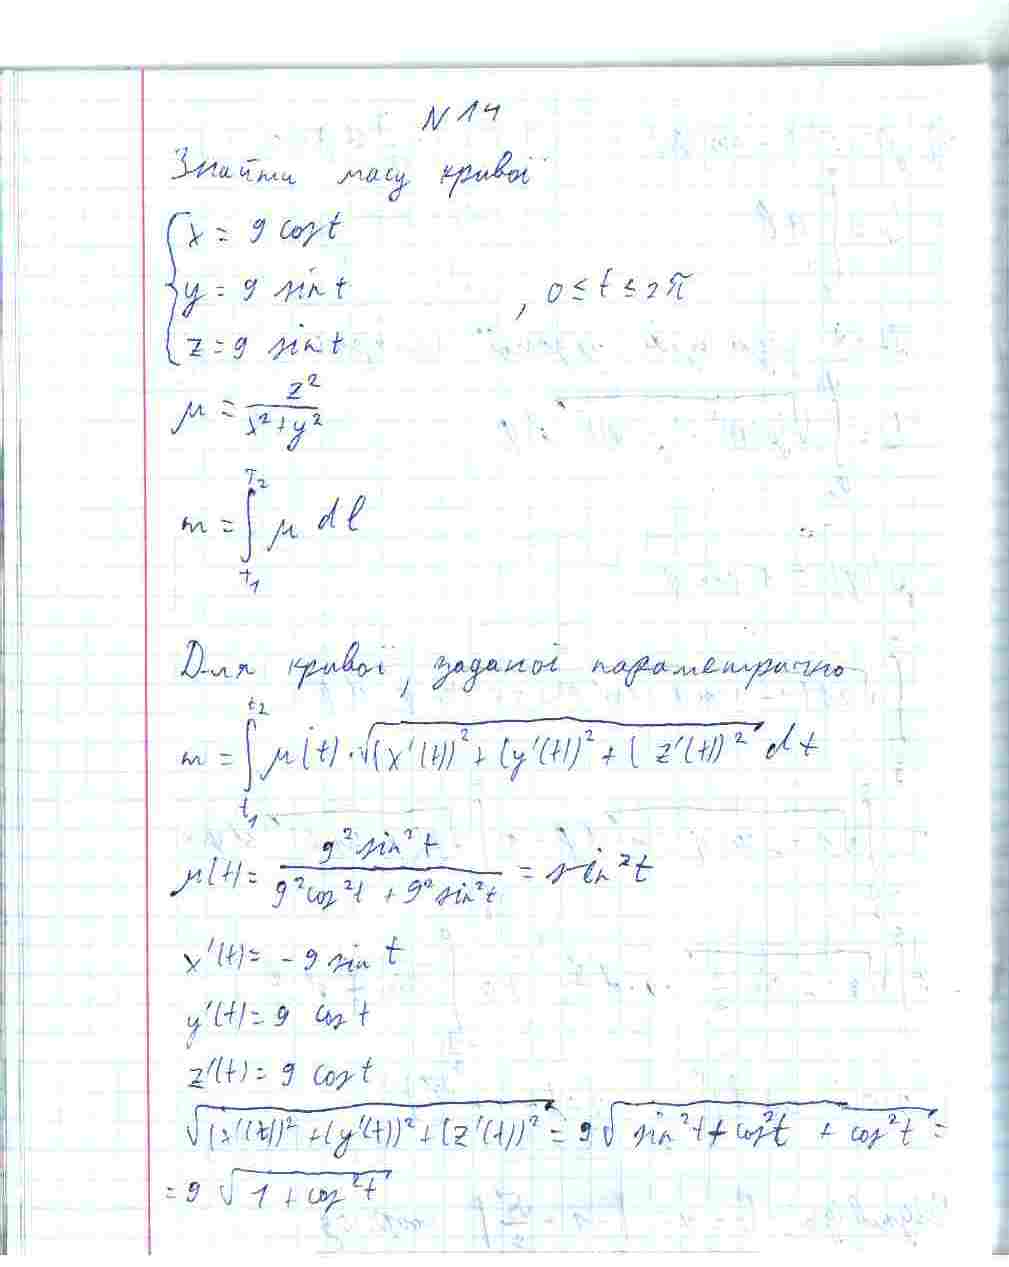 N 14
Знайти масу кривої
x = 9 cos t
y = 9 sin t , 0 ≤ t ≤ 2π
z = 9 sin t
μ = z² / (x² + y²)
m = ∫_{t₁}^{t₂} μ dl
Для кривої, заданої параметрично
m = ∫_{t₁}^{t₂} μ(t) · √((x'(t))² + (y'(t))² + (z'(t))²) dt
μ(t) = 9² sin² t / (9² cos² t + 9² sin² t) = sin² t
x'(t) = - 9 sin t
y'(t) = 9 cos t
z'(t) = 9 cos t
√((x'(t))² + (y'(t))² + (z'(t))²) = 9 √(sin² t + cos² t + cos² t) =
= 9 √(1 + cos² t)